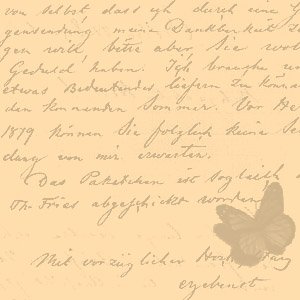 von selbst, dass ich durch eine
gensendung meine Dankbarkeit
gen will bitte aber Sie wol
Geduld haben. Ich brauche
etwas Bedeutendes liefern zu könne
den kommenden Sommer. Vor
1879 können Sie folglich keine Se
dung von mir erwarten.
Das Paketchen ist sogleich a
Th. Fries abgeschickt worden
Mit vorzüglicher
ergebenst